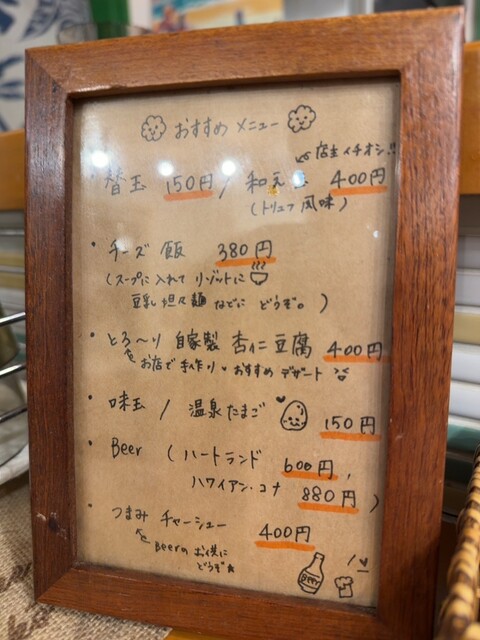 おすすめ メニュー
店主イチオシ!!
・替玉 150円 / 和え玉 400円
(トリュフ風味)
・チーズ飯 380円
(スープに入れて リゾットに
豆乳坦々麺 などに どうぞ。)
・とろ〜り 自家製 杏仁豆腐 400円
お店で手作り・おすすめ デザート
・味玉 / 温泉たまご 150円
・Beer (ハートランド 600円,
ハワイアン・コナ 880円)
・つまみ チャーシュー 400円
Beerの お供に
どうぞ
BEER